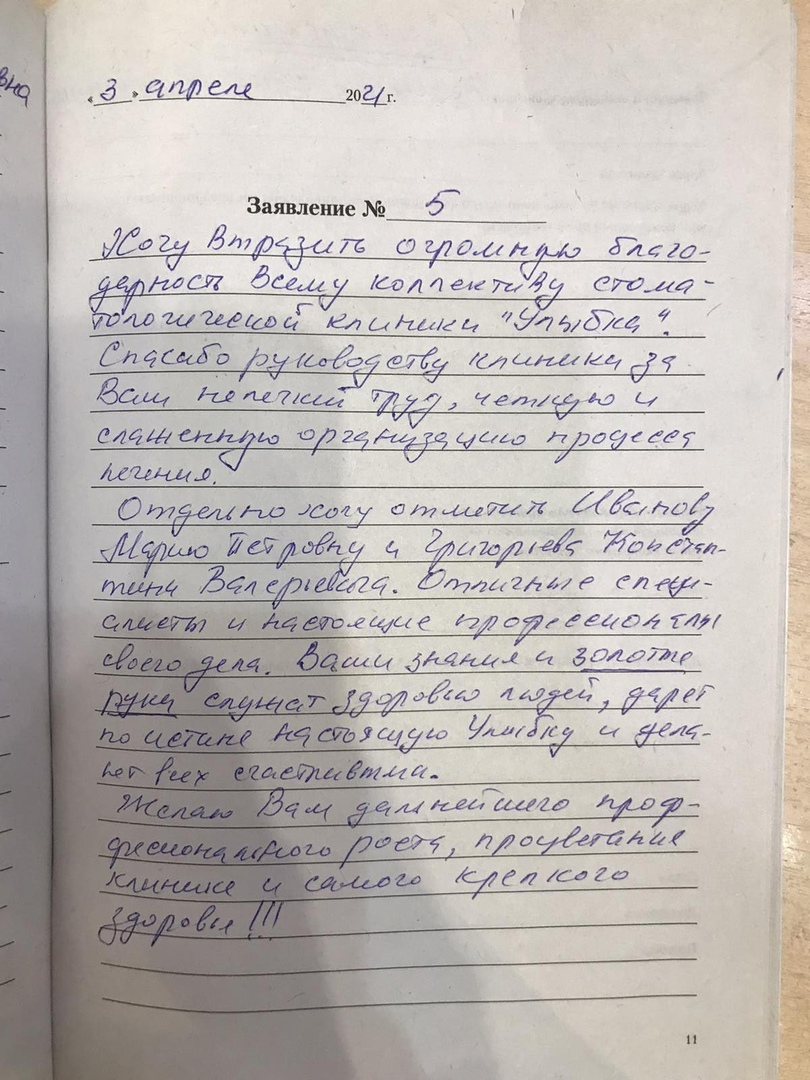 вна
«3» апреля 2021 г.
Заявление № 5
Хочу выразить огромную благо-
дарность всему коллективу стома-
тологической клиники "Улыбка".
Спасибо руководству клиники за
Ваш нелегкий труд, четкую и
слаженную организацию процесса
лечения.
Отдельно хочу отметить Иванову
Марию Петровну и Григорьева Констан-
тина Валерьевича. Отличные специ-
алисты и настоящие профессионалы
своего дела. Ваши знания и золотые
руки служат здоровью людей, дарят
по истине настоящую Улыбку и дела-
ют всех счастливыми.
Желаю Вам дальнейшего проф-
фесионального роста, процветание
клинике и самого крепкого
здоровья!!!
11